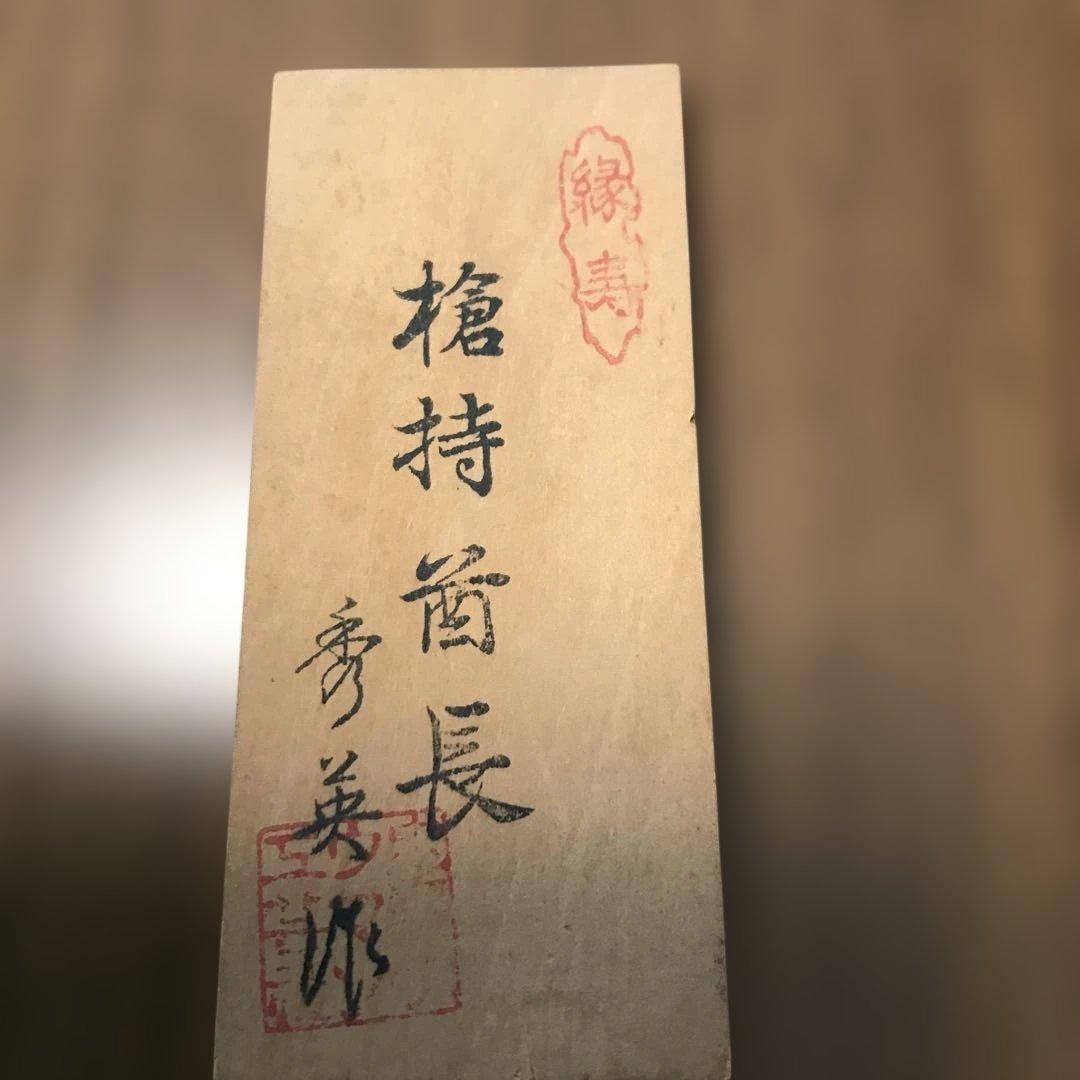 縁寿
槍持酋長
秀英作